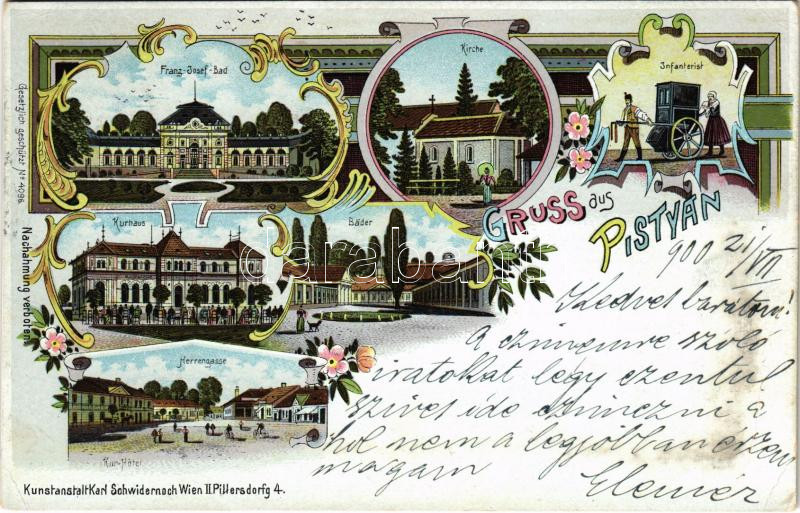 Franz-Josef-Bad
Kirche
Infanterist
Gesetzlich geschützt No 4096.
Nachahmung verboten.
GRUSS aus
PISTYÁN
Kurhaus
Bäder
darabanth
900 21/VII
Kedves barátom!
A czimemre szoló
iratokat légy ezentul
szives ide czimezni a
hol nem a legjobban érzem
magam
Elemér
Herrengasse
Kur-Hôtel
Kunstanstalt Karl Schwidernoch Wien II. Pillersdorfg 4.